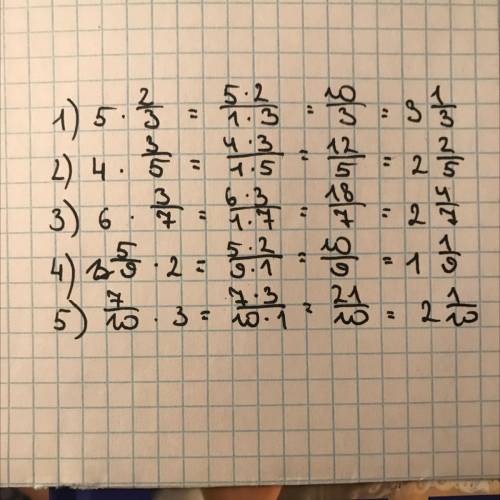 1) 5 · 2/3 = 5·2/1·3 = 10/3 = 3 1/3
2) 4 · 3/5 = 4·3/1·5 = 12/5 = 2 2/5
3) 6 · 3/7 = 6·3/1·7 = 18/7 = 2 4/7
4) 5/9 · 2 = 5·2/9·1 = 10/9 = 1 1/9
5) 7/10 · 3 = 7·3/10·1 = 21/10 = 2 1/10